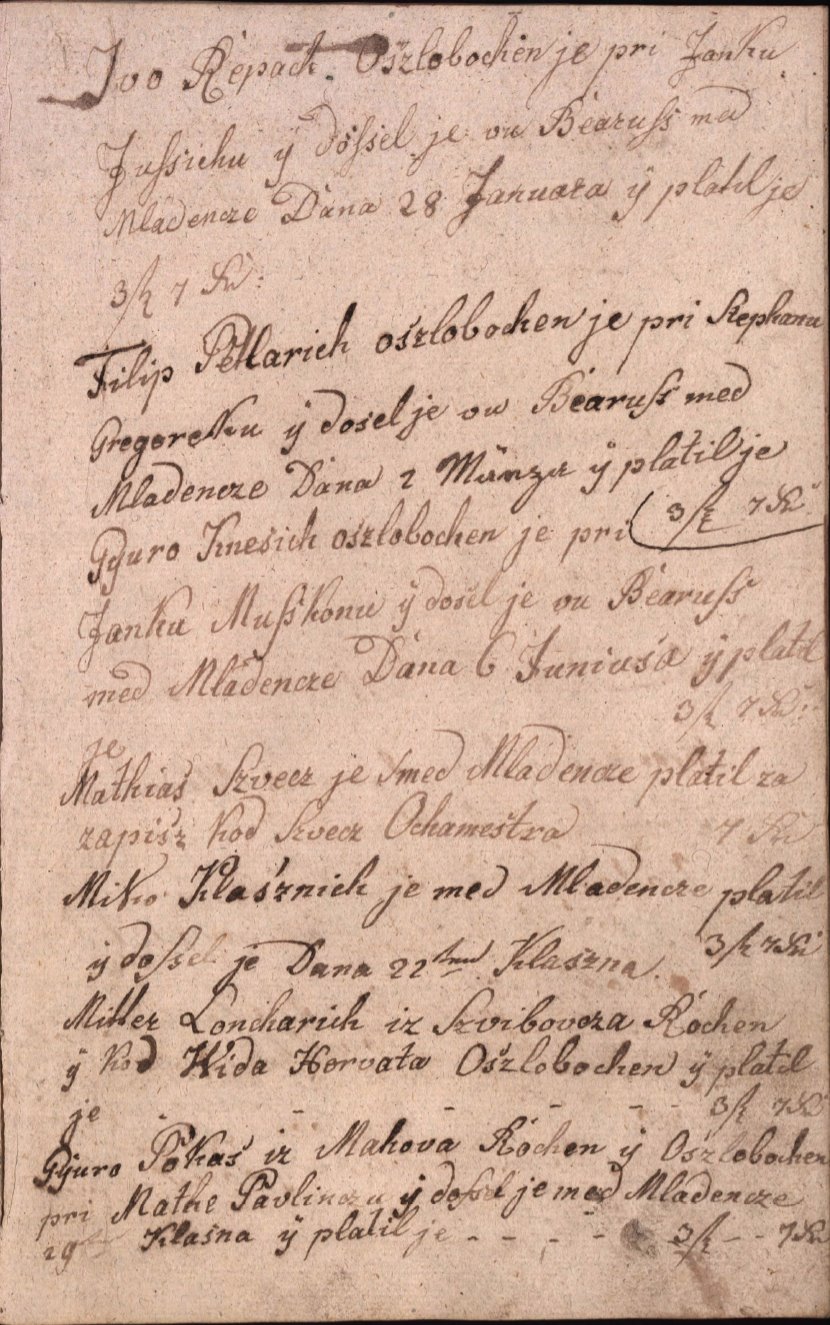 Ivo Répach. Oszlobochen je pri Janku
Jussichu ÿ dossel je vu Béaruss med
Mladencze Dána 28 Januara ÿ platil je
3 7
Filip Petlarich oszlobochen je pri Stephanu
Gregoretku ÿ dosel je vu Béaruss med
Mladencze Dána 2 ÿ platil je
Gÿuro Knesich oszlobochen je pri 3 7
Janku Musskonu ÿ dosel je vu Béaruss
med Mladencze Dána 6 Juniusa ÿ platil
3 7
je
Mathias Szvecz je smed Mladencze platil za
zapisz kod Szvecz Ochamestra 7
Miko Klasznich je med Mladencze platil
ÿ dossel je Dana 22 Klaszna 3 7
Mitter Loncharich iz Szvibovcza Róchen
ÿ kod Wida Horvata Oszlobochen ÿ platil
je - - - - - 3 7
Gÿuro Pókas iz Mahova Róchen ÿ Oszlobochen
pri Mathe Pavlinczu ÿ dossel je med Mladencze
29 Klasna ÿ platil je - - - - 3 - - 7